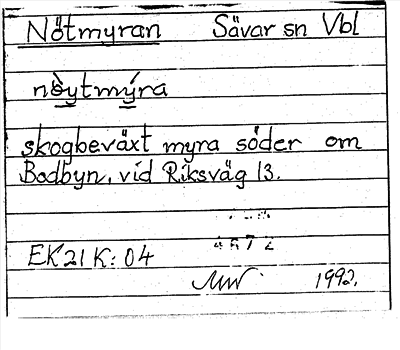 Nötmyran Sävar sn Vbl
nòytmýra
skogbeväxt myra söder om
Bodbyn, vid Riksväg 13.
EK 21 K: 04
1992.